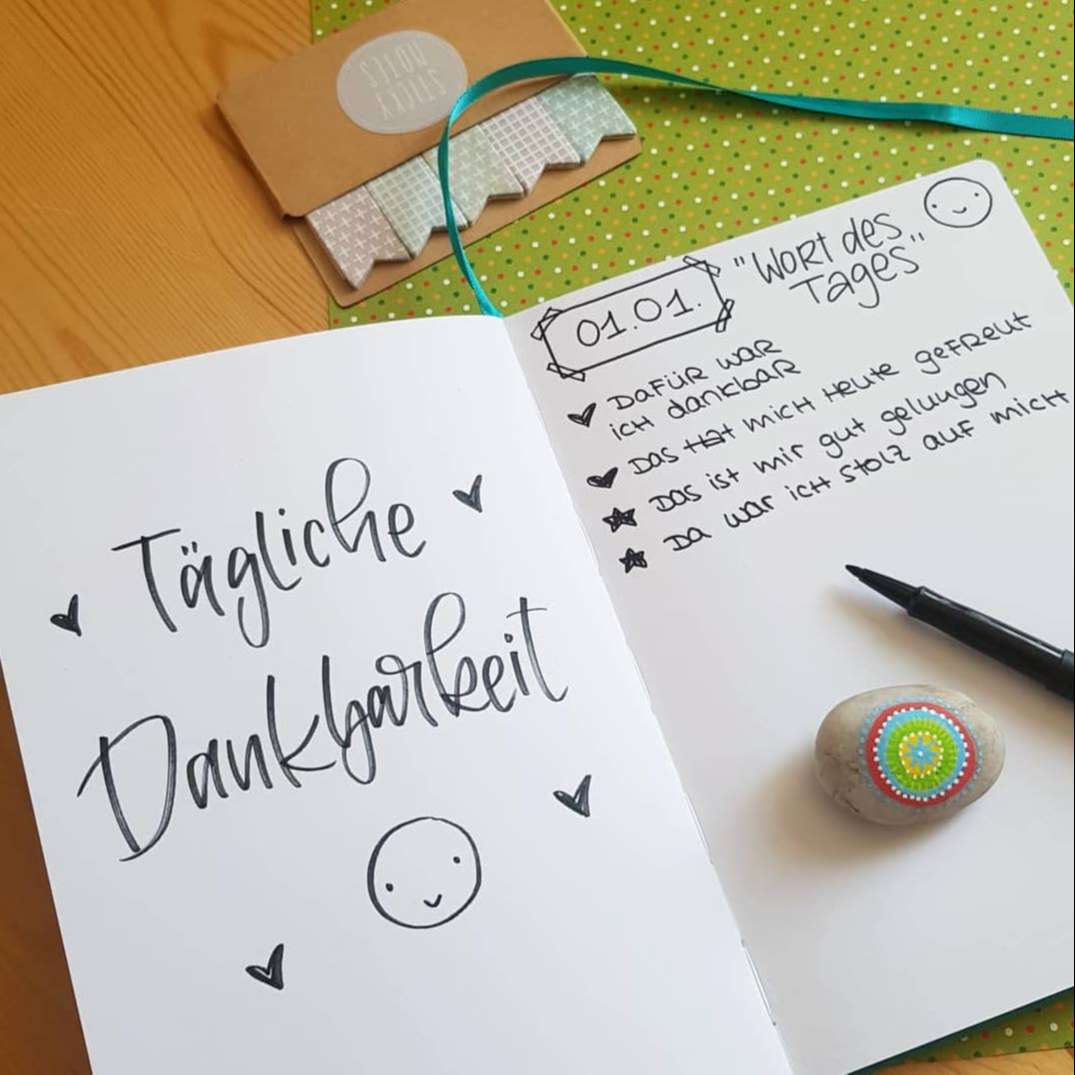 STICKY
NOTES
Tägliche
Dankbarkeit
01.01.
"Wort des
Tages"
Dafür war
ich dankbar
Das hat mich heute gefreut
Das ist mir gut gelungen
Da war ich stolz auf mich